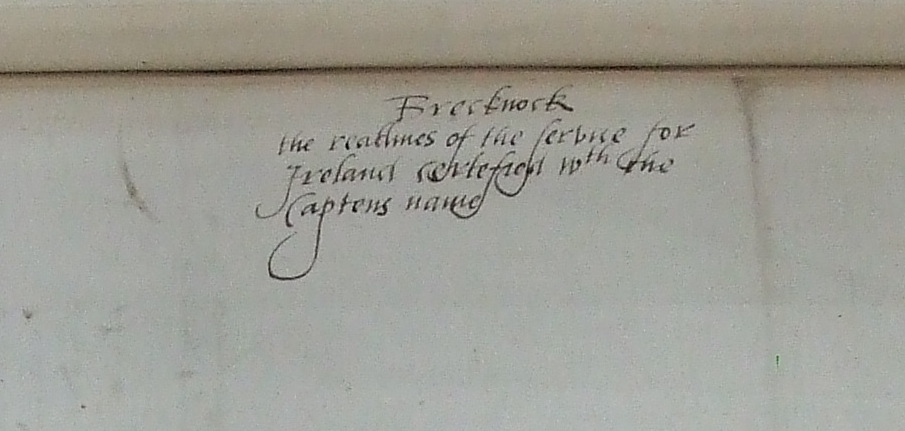 Brecknock
the readines of the service for
Ireland certefied wth the
Captens name